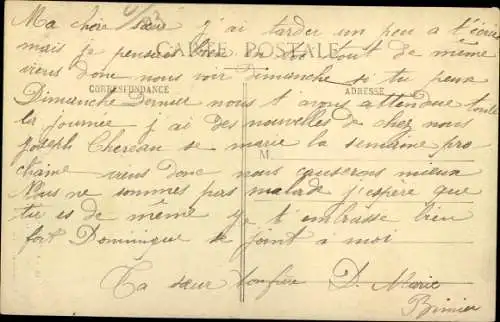 Ma chère sœur j'ai tarder un peu a t'écrire
CARTE POSTALE
mais je penserer bien en toi tout de même
viens donc nous voir dimanche si tu peux
CORRESPONDANCE
ADRESSE
Dimanche Dernier nous t avons attendue toute
la journée j'ai des nouvelles de chez nous
Joseph Chereau se marie la semaine pro
M
chaine viens donc nous causerons mieux
Nous ne sommes pas malade j'espere que
tu es de même je t embrasse bien
fort Dominique se joint a moi
Ta sœur D. Marie